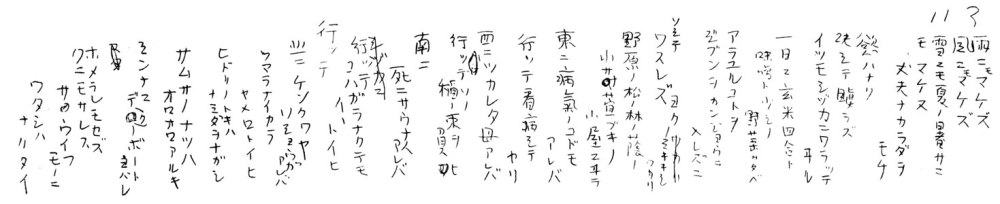 11 3
雨ニモマケズ
風ニモマケズ
雪ニモ夏ノ暑サニ
モ マケヌ
丈夫ナカラダヲ
モチ
慾ハナク
決シテ瞋ラズ
イツモシヅカニワラッテ
ヰル
一日ニ玄米四合ト
味噌ト少シノ
野菜ヲタベ
アラユルコトヲ
ジブンヲカンジョウニ
入レズニ
ヨクミキキシ
ワカリ
ソシテ
ワスレズ
野原ノ松ノ林ノ蔭ノ
小サナ萱ブキノ
小屋ニヰテ
東ニ病氣ノコドモ
アレバ
行ッテ看病シテ
ヤリ
西ニツカレタ母アレバ
行ッテソノ
稲ノ束ヲ
負ヒ
南ニ
死ニサウナ人
アレバ
行ッテ
コハガラナクテモ
イヽトイヒ
行ッテ
北ニケンクヮヤ
ソショウガ
アレバ
ツマラナイカラ
ヤメロトイヒ
ヒドリノトキハ
ナミダヲナガシ
サムサノナツハ
オロオロアルキ
ミンナニ
デクノボートヨバレ
ホメラレモセズ
クニモサレズ
サウイフ
モノニ
ワタシハ
ナリタイ